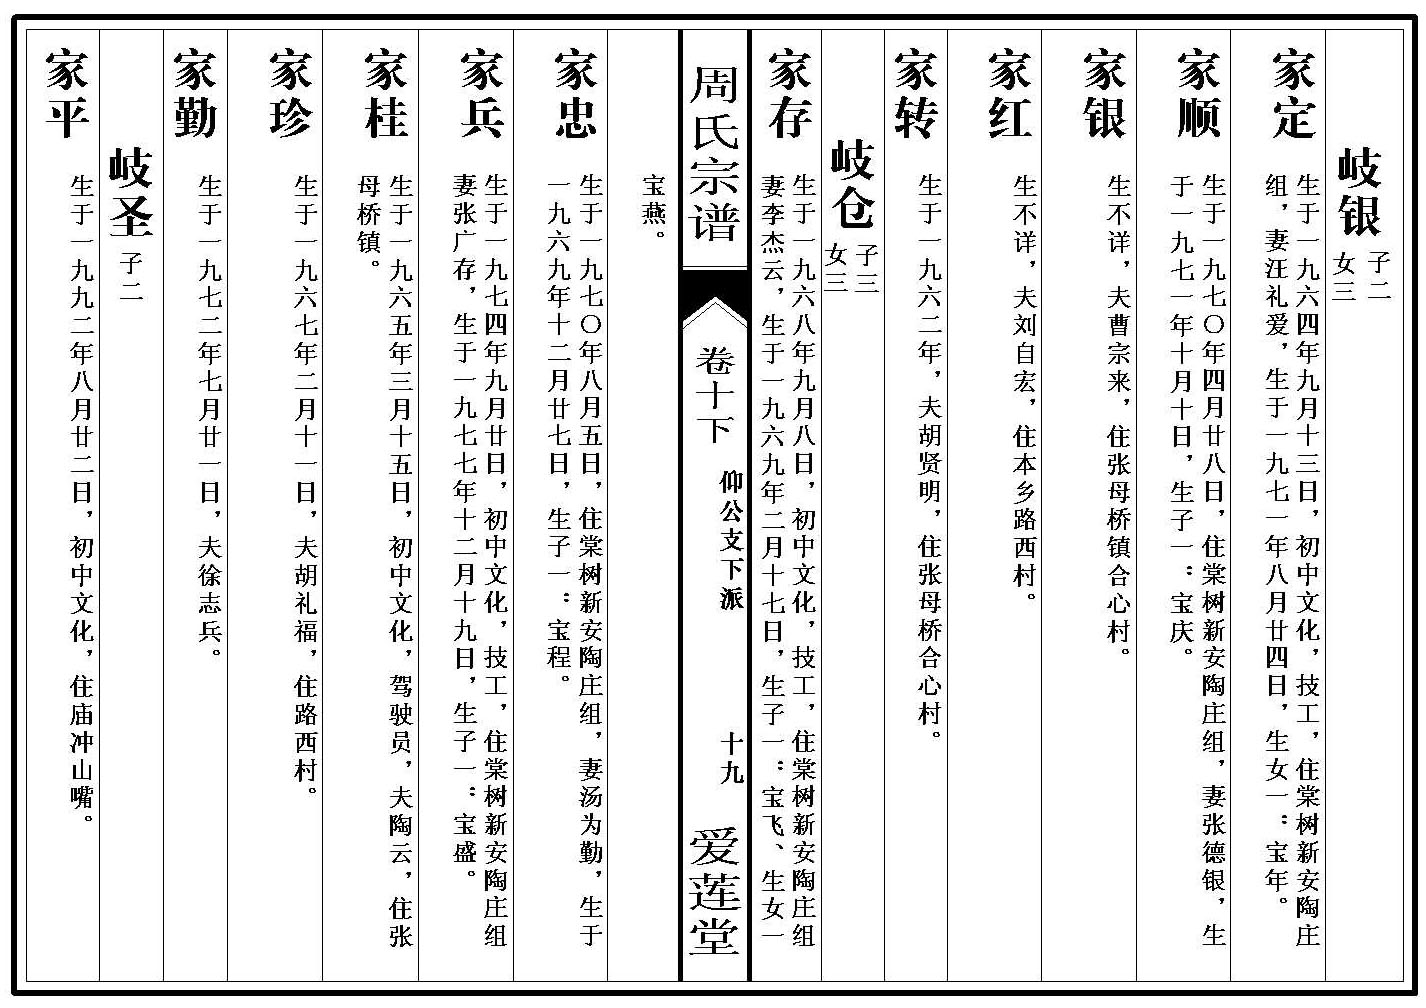 岐银
子二
女三
家定
生于一九六四年九月十三日，初中文化，技工，住棠树新安陶庄
组，妻汪礼爱，生于一九七一年八月廿四日，生女一：宝年。
家顺
生于一九七〇年四月廿八日，住棠树新安陶庄组，妻张德银，生
于一九七一年十月十日，生子一：宝庆。
家银
生不详，夫曹宗来，住张母桥镇合心村。
家红
生不详，夫刘自宏，住本乡路西村。
家转
生于一九六二年，夫胡贤明，住张母桥合心村。
岐仓
子三
女三
家存
生于一九六八年九月八日，初中文化，技工，住棠树新安陶庄组
妻李杰云，生于一九六九年二月十七日，生子一：宝飞、生女一
周氏宗谱
卷十下
仰公支下派
十九
爱莲堂
宝燕。
家忠
生于一九七〇年八月五日，住棠树新安陶庄组，妻汤为勤，生于
一九六九年十二月廿七日，生子一：宝程。
家兵
生于一九七四年九月廿日，初中文化，技工，住棠树新安陶庄组
妻张广存，生于一九七七年十二月十九日，生子一：宝盛。
家桂
生于一九六五年三月十五日，初中文化，驾驶员，夫陶云，住张
母桥镇。
家珍
生于一九六七年二月十一日，夫胡礼福，住路西村。
家勤
生于一九七二年七月廿一日，夫徐志兵。
岐圣
子二
家平
生于一九九二年八月廿二日，初中文化，住庙冲山嘴。